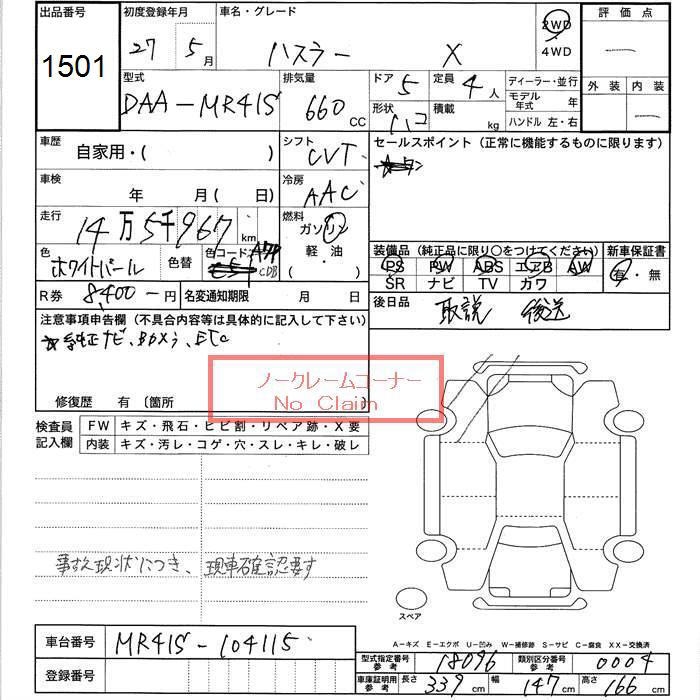 出品番号 初度登録年月 車名・グレード 評価点
1501 27年5月 ハスラー X 2WD 4WD
型式 排気量 ドア 5 定員 4人 ディーラー・並行 外装 内装
DAA-MR41S 660 CC 形状 ハコ 積載 kg モデル年式 年
ハンドル 左・右
車歴 シフト セールスポイント（正常に機能するものに限ります）
自家用・( ) CVT
車検 冷房
年 月 ( 日) AAC
走行 燃料
14万5千967 km ガソリン
軽・油
( ・ )
色 色替 色コード
ホワイトパール CDB
装備品（純正品に限り○をつけてください） 新車保証書
PS PW ABS エアB AW 有・無
SR ナビ TV カワ
R券 8,400-円 名変通知期限 月 日 後日品 取説 後送
注意事項申告欄（不具合内容等は具体的に記入して下さい）
ETC
ノークレームコーナー
No Claim
修復歴 有 〔箇所 〕
検査員記入欄 FW キズ・飛石・ヒビ割・リペア跡・X要
内装 キズ・汚レ・コゲ・穴・スレ・キレ・破レ
事故現状につき、現車確認要す
スペア
A-キズ E-エクボ U-凹み W-補修跡 S-サビ C-腐食 XX-交換済
車台番号 MR41S-104115
登録番号
型式指定番号 参考 18096 類別区分番号 参考 0004
車庫証明用 参考 長さ 339 cm 幅 147 cm 高さ 166 cm